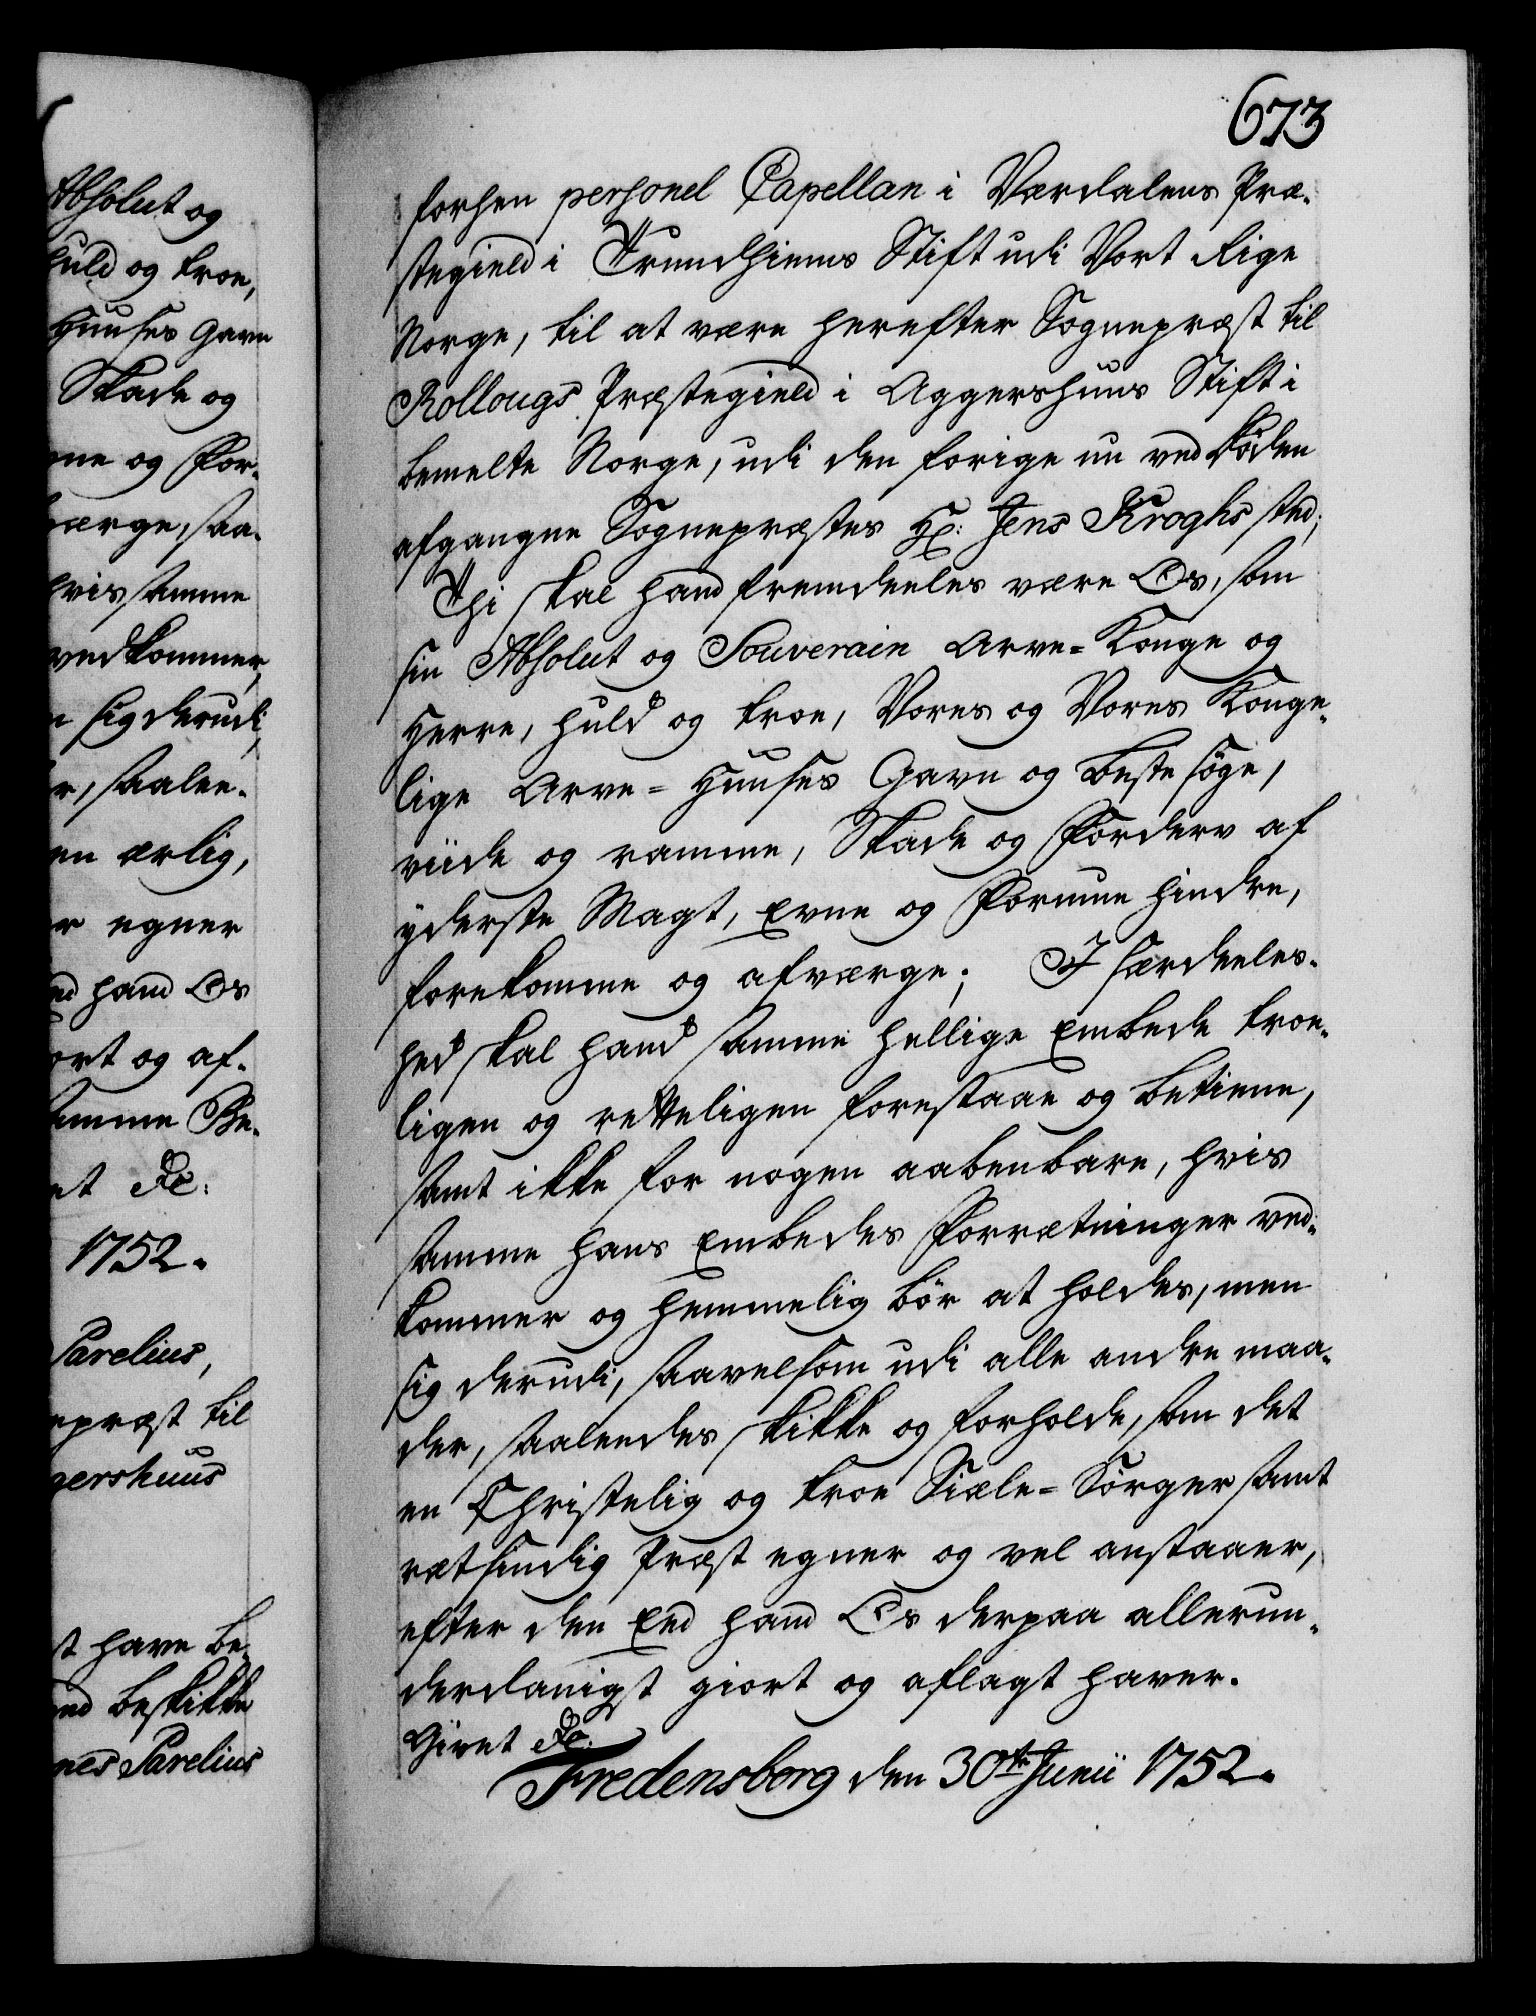 Absolut og
huld og troe,
Huuses Gavn
Skade og
ne og For-
værge, saa-
hvis samme
vedkommer,
sig derudi,
r, saalen-
en ærlig,
r egner
hand Os
ort og af-
amme Be-
et &c:
1752.
Parelius,
epræst til
gershuus
t have be-
nd beskikke
nes Parelius
673
forhen personel Capellan i Værdalens Præ-
stegield i Trundhiems Stift udi Vort Rige
Norge, til at være herefter Sognepræst til
Rollougs Præstegield i Aggershuus Stift i
bemelte Norge, udi den forige nu ved Døden
afgangne Sognepræstes Hr: Jens Kroghs sted;
Thi skal hand fremdeeles være Os, som
sin Absolut og Souverain Arve-Konge og
Herre, huld og troe, Vores og Vores Konge-
lige Arve-Huuses Gavn og beste søge,
viide og ramme, Skade og Forderv af
yderste Magt, Evne og Formue hindre,
forekomme og afværge; I særdeeles-
hed skal hand samme hellige Embede troe-
ligen og retteligen forestaae og betiene,
samt ikke for nogen aabenbare, hvis
samme hans Embedes Forrætninger ved-
kommer og hemmelig bør at holdes, men
sig derudi, saavelsom udi alle andre maa-
der, saaledes skikke og forholde, som det
en Christelig og troe Siæle-Sørger samt
rætsindig Præst egner og vel anstaaer,
efter den Eed hand Os derpaa allerun-
derdanigst giort og aflagt haver.
Givet &c:
Fredensborg den 30te Junii 1752.